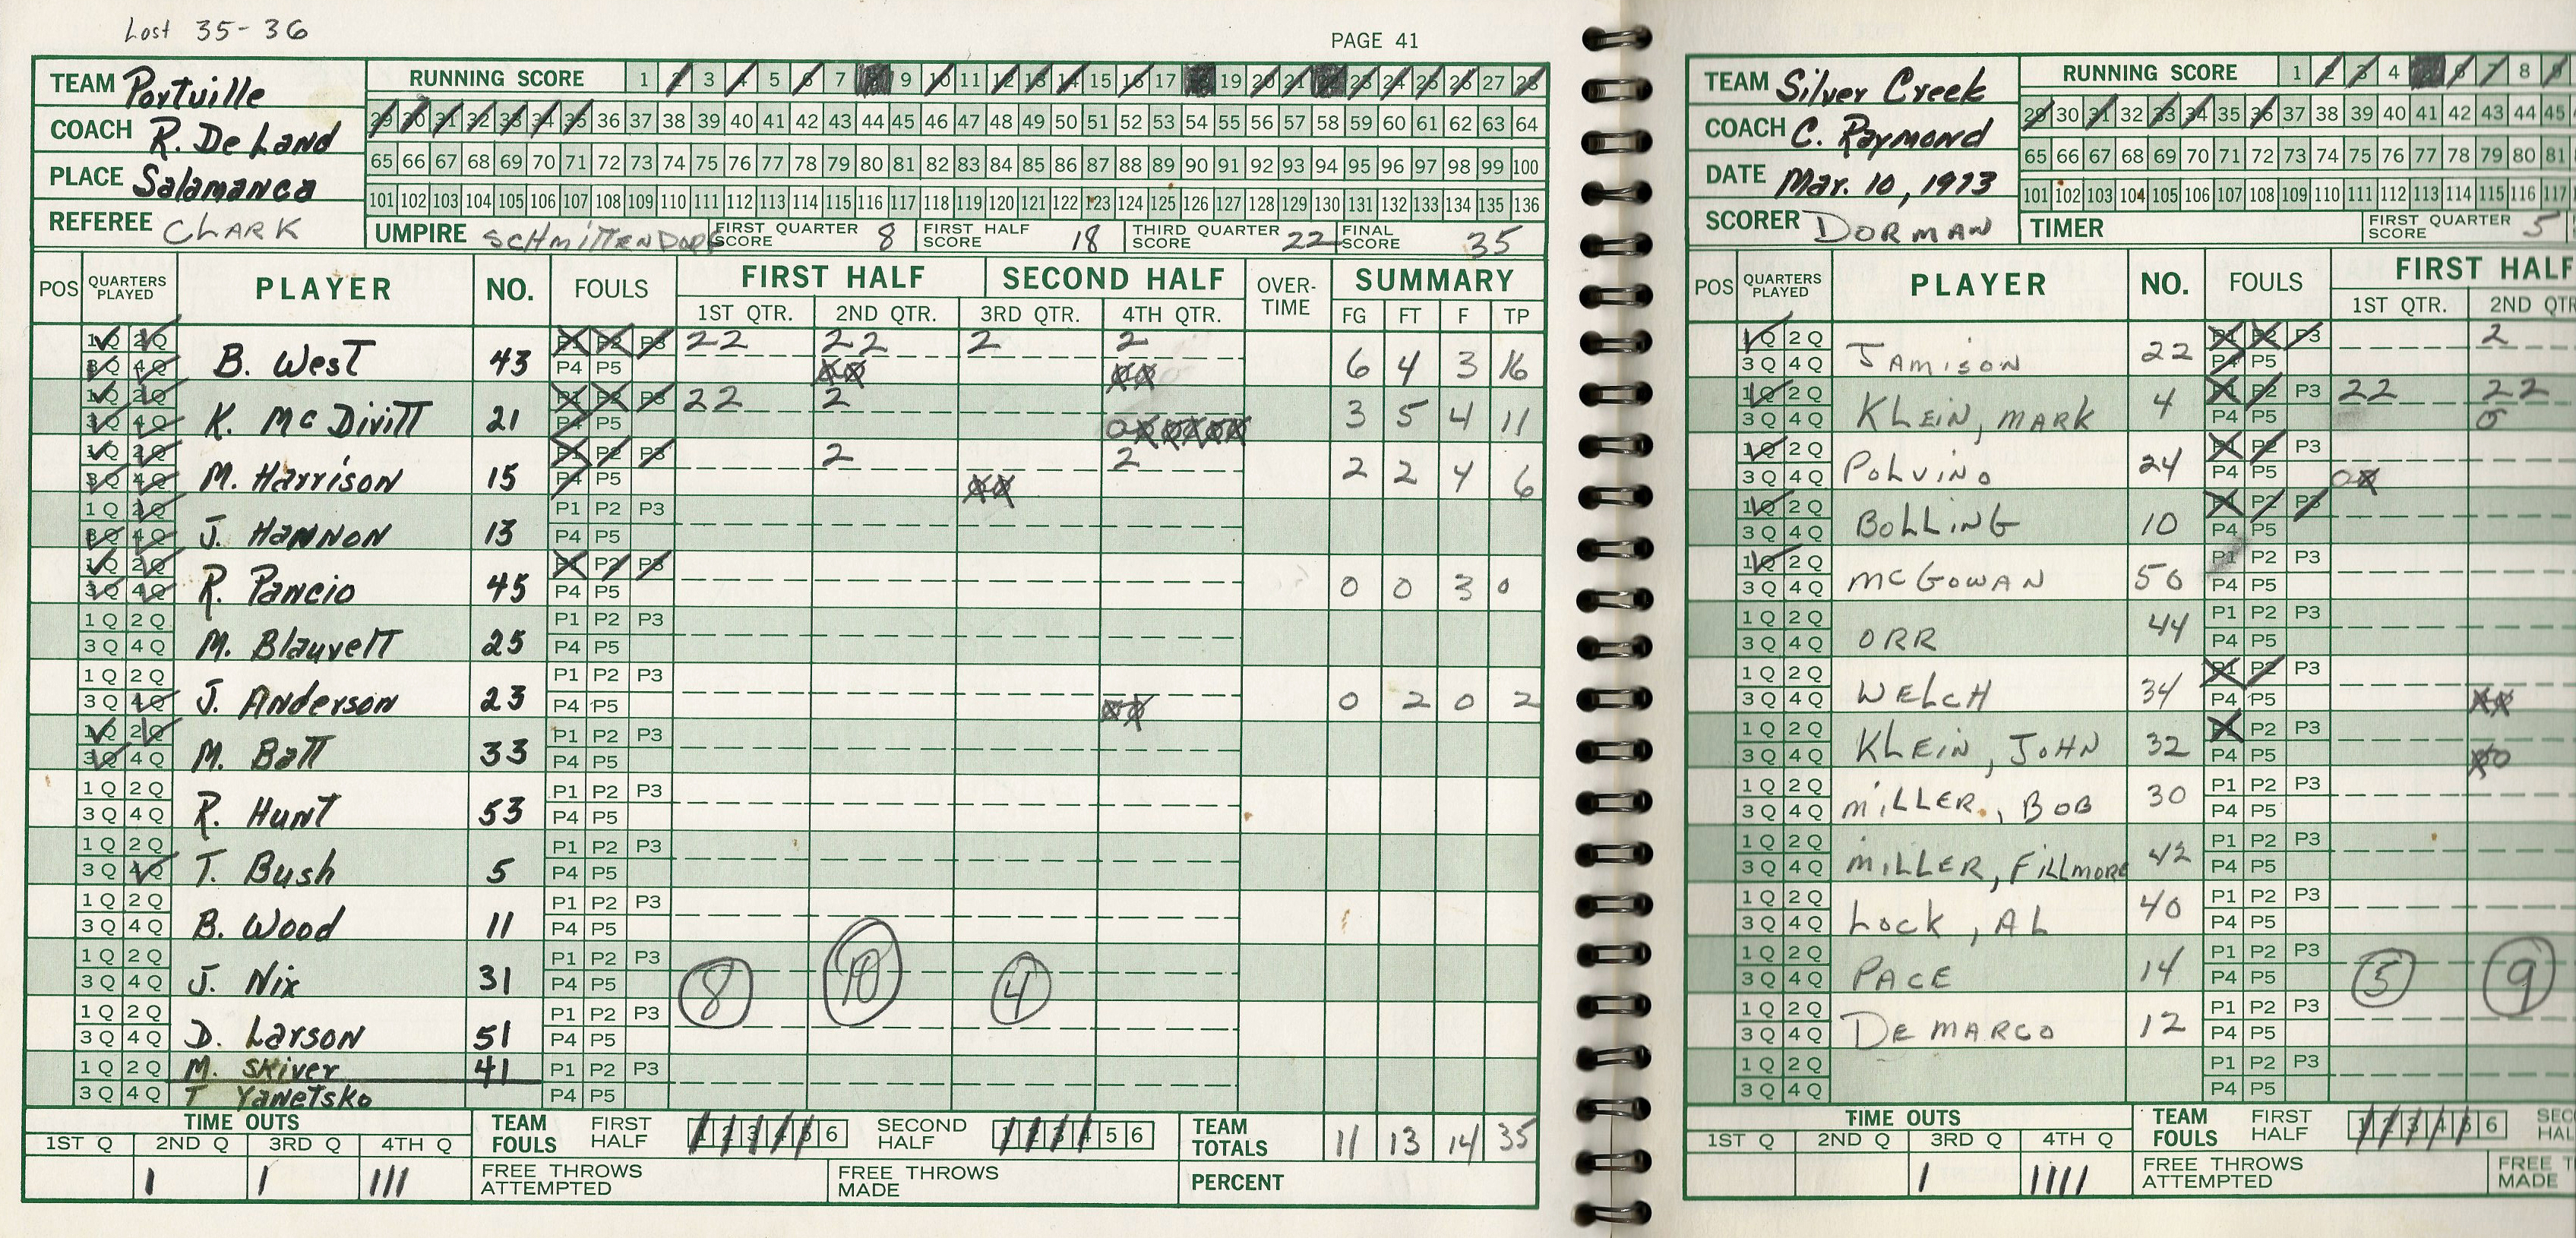 Lost 35-36
PAGE 41
TEAM Portville
COACH R. De Land
PLACE Salamanca
REFEREE CLARK
RUNNING SCORE 1 2 3 4 5 6 7 8 9 10 11 12 13 14 15 16 17 18 19 20 21 22 23 24 25 26 27 28
29 30 31 32 33 34 35 36 37 38 39 40 41 42 43 44 45 46 47 48 49 50 51 52 53 54 55 56 57 58 59 60 61 62 63 64
65 66 67 68 69 70 71 72 73 74 75 76 77 78 79 80 81 82 83 84 85 86 87 88 89 90 91 92 93 94 95 96 97 98 99 100
101 102 103 104 105 106 107 108 109 110 111 112 113 114 115 116 117 118 119 120 121 122 123 124 125 126 127 128 129 130 131 132 133 134 135 136
UMPIRE SCHMITTENDORF FIRST QUARTER SCORE 8 FIRST HALF SCORE 18 THIRD QUARTER SCORE 22 FINAL SCORE 35
POS QUARTERS PLAYED PLAYER NO. FOULS FIRST HALF SECOND HALF OVER-TIME SUMMARY
1ST QTR. 2ND QTR. 3RD QTR. 4TH QTR. FG FT F TP
1Q 2Q 3Q 4Q B. West 43 P1 P2 P3 P4 P5 22 22 2 2 6 4 3 16
1Q 2Q 3Q 4Q K. McDivitt 21 P1 P2 P3 P4 P5 22 2 3 5 4 11
1Q 2Q 3Q 4Q M. Harrison 15 P1 P2 P3 P4 P5 2 2 2 2 4 6
1Q 2Q 3Q 4Q J. Hannon 13 P1 P2 P3 P4 P5
1Q 2Q 3Q 4Q R. Pancio 45 P1 P2 P3 P4 P5 0 0 3 0
1Q 2Q 3Q 4Q M. Blauvelt 25 P1 P2 P3 P4 P5
1Q 2Q 3Q 4Q J. Anderson 23 P1 P2 P3 P4 P5 0 2 0 2
1Q 2Q 3Q 4Q M. Batt 33 P1 P2 P3 P4 P5
1Q 2Q 3Q 4Q R. Hunt 53 P1 P2 P3 P4 P5
1Q 2Q 3Q 4Q T. Bush 5 P1 P2 P3 P4 P5
1Q 2Q 3Q 4Q B. Wood 11 P1 P2 P3 P4 P5
1Q 2Q 3Q 4Q J. Nix 31 P1 P2 P3 P4 P5 8 10 4
1Q 2Q 3Q 4Q D. Larson 51 P1 P2 P3 P4 P5
1Q 2Q M. Skiver 41 P1 P2 P3
3Q 4Q T Yanetsko P4 P5
TIME OUTS TEAM FOULS FIRST HALF 1 2 3 4 5 6 SECOND HALF 1 2 3 4 5 6 TEAM TOTALS 11 13 14 35
1ST Q 2ND Q 3RD Q 4TH Q
I I III FREE THROWS ATTEMPTED FREE THROWS MADE PERCENT
TEAM Silver Creek
COACH C. Raymond
DATE Mar. 10, 1973
SCORER DORMAN
RUNNING SCORE 1 2 3 4 5 6 7 8 9
29 30 31 32 33 34 35 36 37 38 39 40 41 42 43 44 45
65 66 67 68 69 70 71 72 73 74 75 76 77 78 79 80 81
101 102 103 104 105 106 107 108 109 110 111 112 113 114 115 116 117
TIMER FIRST QUARTER SCORE 5
POS QUARTERS PLAYED PLAYER NO. FOULS FIRST HALF
1ST QTR. 2ND QTR
1Q 2Q 3Q 4Q JAMISON 22 P1 P2 P3 P4 P5 2
1Q 2Q 3Q 4Q KLEIN, MARK 4 P1 P2 P3 P4 P5 22 22 0
1Q 2Q 3Q 4Q POLVINO 24 P1 P2 P3 P4 P5
1Q 2Q 3Q 4Q BOLLING 10 P1 P2 P3 P4 P5
1Q 2Q 3Q 4Q MCGOWAN 50 P1 P2 P3 P4 P5
1Q 2Q 3Q 4Q ORR 44 P1 P2 P3 P4 P5
1Q 2Q 3Q 4Q WELCH 34 P1 P2 P3 P4 P5
1Q 2Q 3Q 4Q KLEIN, JOHN 32 P1 P2 P3 P4 P5
1Q 2Q 3Q 4Q MILLER, BOB 30 P1 P2 P3 P4 P5
1Q 2Q 3Q 4Q MILLER, FILLMORE 42 P1 P2 P3 P4 P5
1Q 2Q 3Q 4Q LOCK, AL 40 P1 P2 P3 P4 P5
1Q 2Q 3Q 4Q PACE 14 P1 P2 P3 P4 P5 5 9
1Q 2Q 3Q 4Q DEMARCO 12 P1 P2 P3 P4 P5
1Q 2Q 3Q 4Q P1 P2 P3 P4 P5
TIME OUTS TEAM FOULS FIRST HALF 1 2 3 4 5 6 SEC HAL
1ST Q 2ND Q 3RD Q 4TH Q
I IIII FREE THROWS ATTEMPTED FREE T MADE